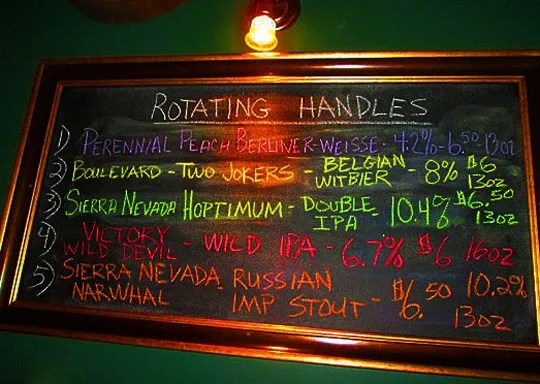 ROTATING HANDLES
1) PERENNIAL PEACH BERLINER-WEISSE - 4.2% - 6.50 13oz
2) BOULEVARD - TWO JOKERS - BELGIAN WITBIER - 8% $6 13oz
3) SIERRA NEVADA HOPTIMUM - DOUBLE IPA - 10.4% $6.50 13oz
4) VICTORY WILD DEVIL - WILD IPA - 6.7% $6 16oz
5) SIERRA NEVADA NARWHAL RUSSIAN IMP STOUT - $6.50 10.2% 13oz